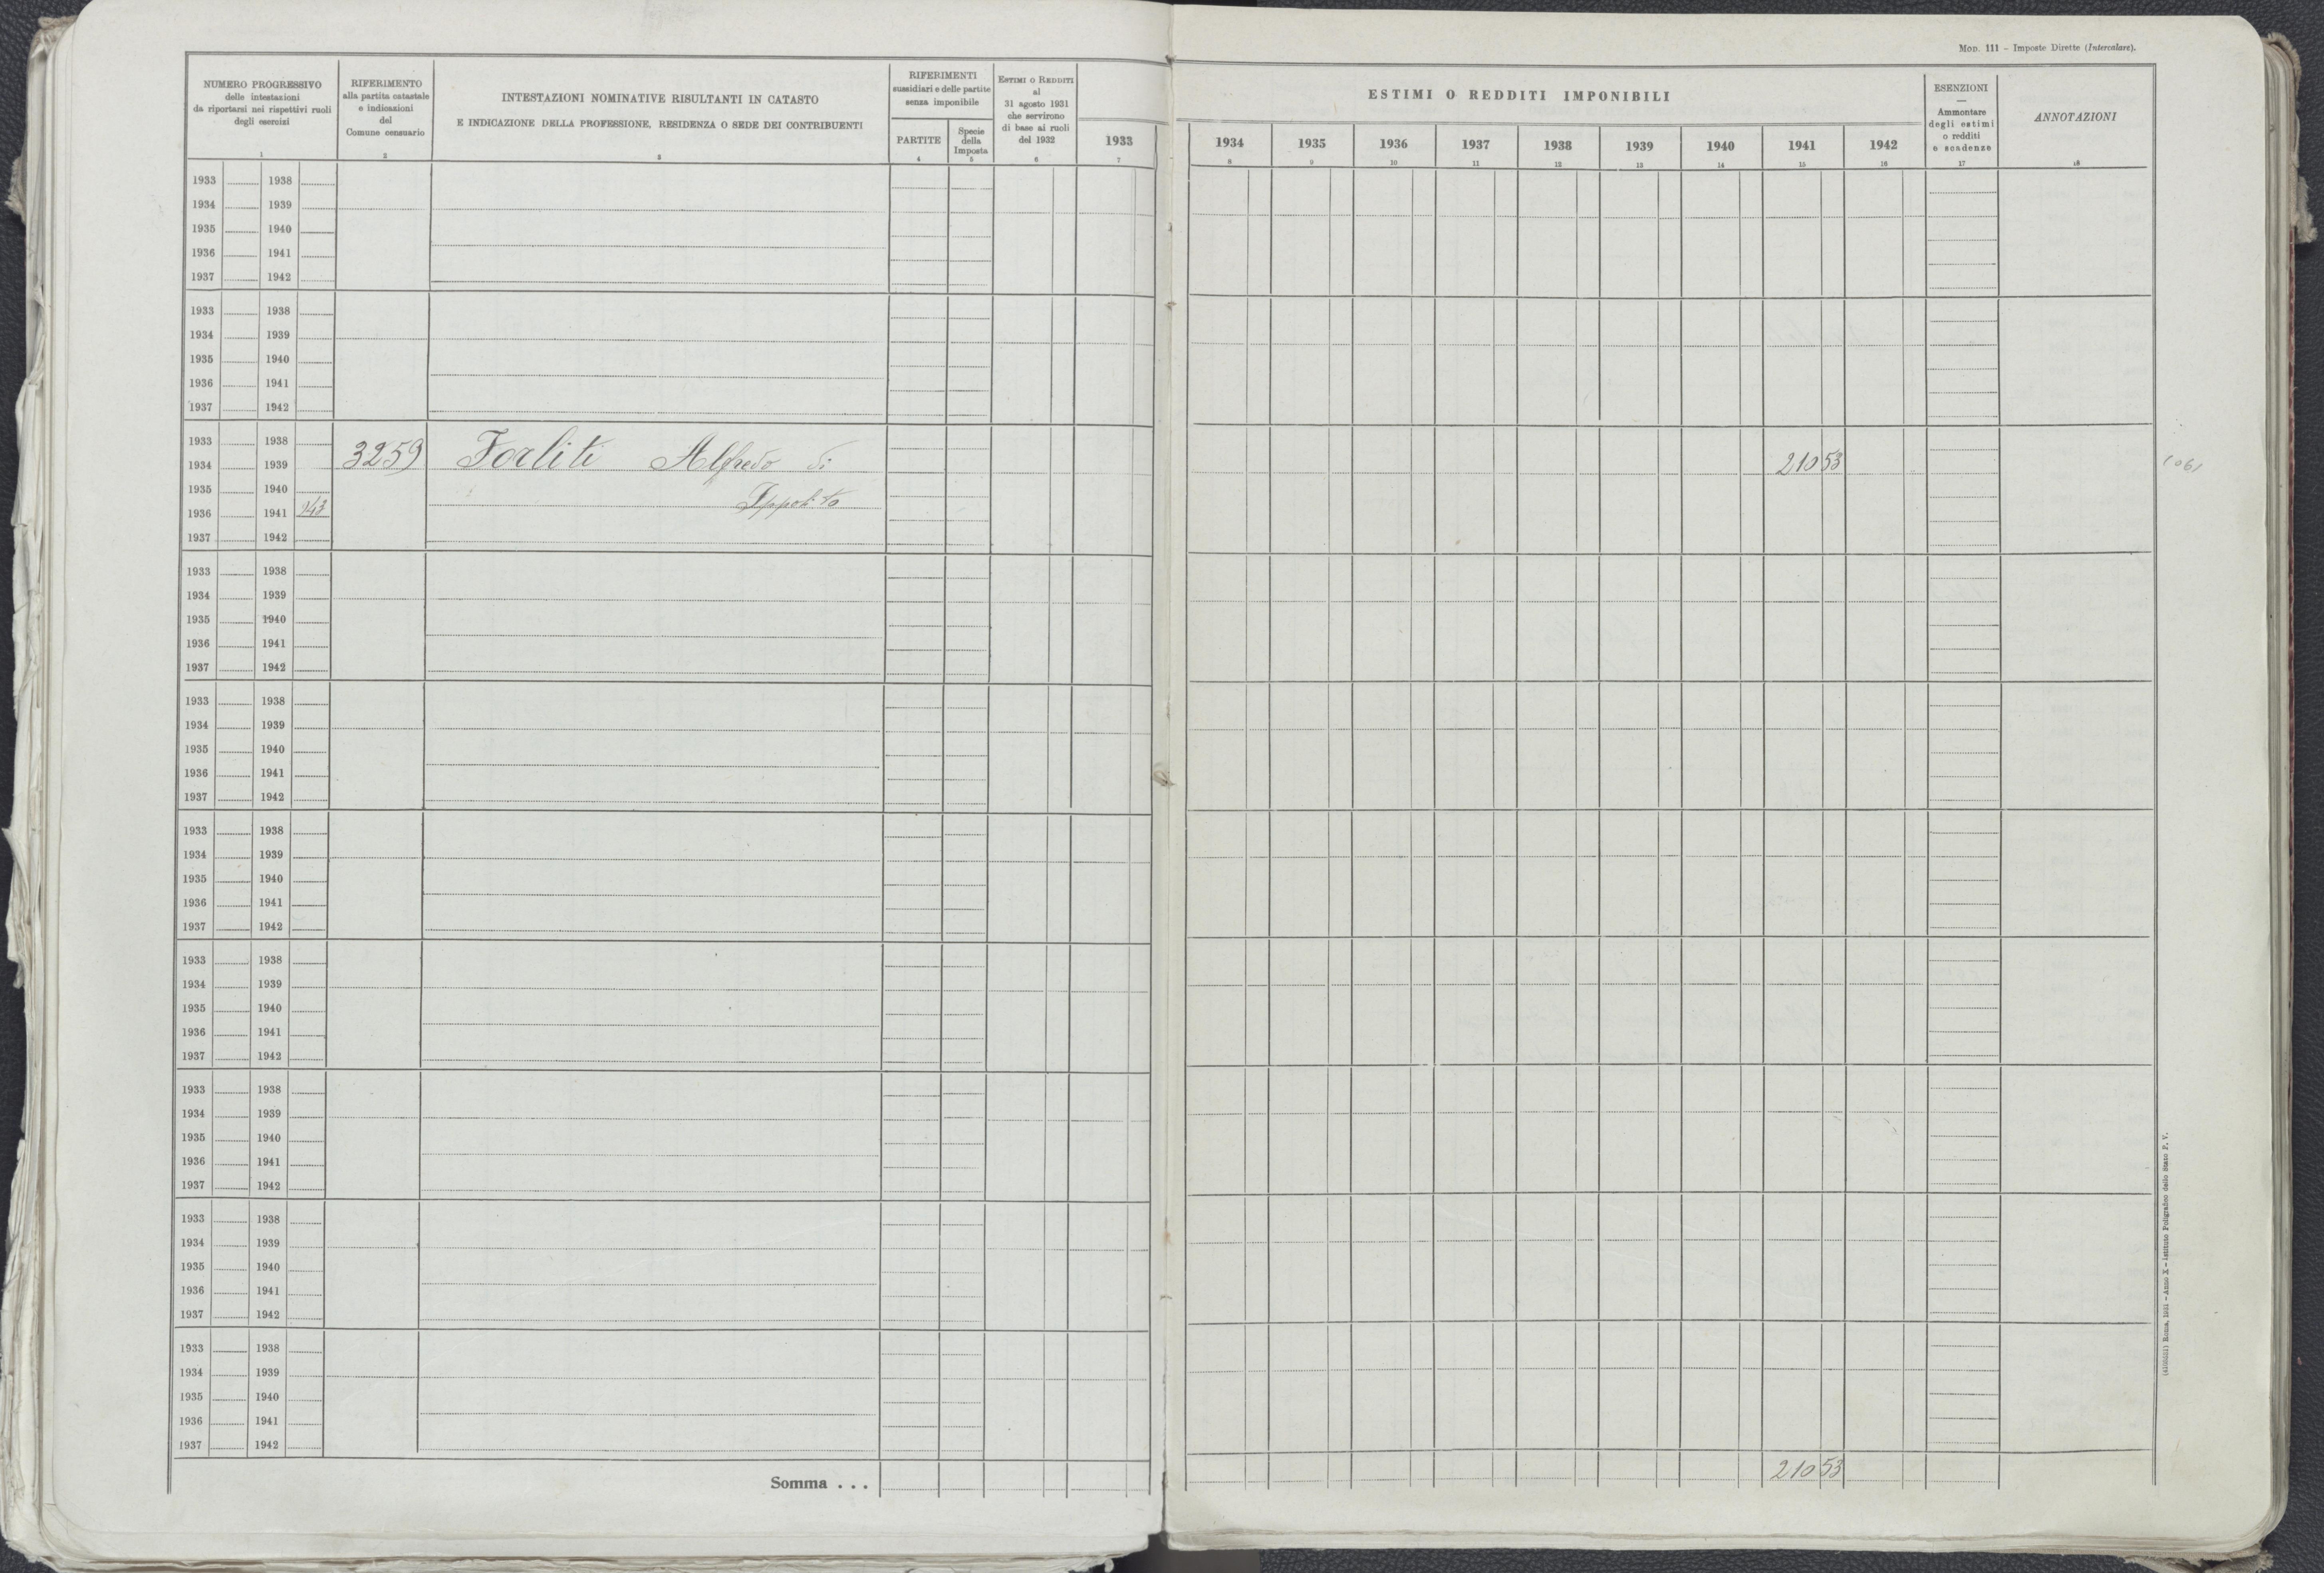 MOD. 111 – Imposte Dirette (Intercalare).
NUMERO PROGRESSIVO
delle intestazioni
da riportarsi nei rispettivi ruoli
degli esercizi
1
RIFERIMENTO
alla partita catastale
e indicazioni
del
Comune censuario
2
INTESTAZIONI NOMINATIVE RISULTANTI IN CATASTO
E INDICAZIONE DELLA PROFESSIONE, RESIDENZA O SEDE DEI CONTRIBUENTI
3
RIFERIMENTI
sussidiari e delle partite
senza imponibile
PARTITE
4
Specie
della
Imposta
5
ESTIMI O REDDITI
al
31 agosto 1931
che servirono
di base ai ruoli
del 1932
6
ESTIMI O REDDITI IMPONIBILI
1933 1934 1935 1936 1937 1938 1939 1940 1941 1942
7 8 9 10 11 12 13 14 15 16
ESENZIONI
—
Ammontare
degli estimi
o redditi
e scadenze
17
ANNOTAZIONI
18
1933 1938
1934 1939
1935 1940
1936 1941
1937 1942
1933 1938
1934 1939
1935 1940
1936 1941
1937 1942
1933 1938
1934 1939 3259 Forliti Alfredo di 210 53
1935 1940 Ippolito
1936 1941 943
1937 1942
1933 1938
1934 1939
1935 1940
1936 1941
1937 1942
1933 1938
1934 1939
1935 1940
1936 1941
1937 1942
1933 1938
1934 1939
1935 1940
1936 1941
1937 1942
1933 1938
1934 1939
1935 1940
1936 1941
1937 1942
1933 1938
1934 1939
1935 1940
1936 1941
1937 1942
1933 1938
1934 1939
1935 1940
1936 1941
1937 1942
1933 1938
1934 1939
1935 1940
1936 1941
1937 1942
Somma . . . 210 53
Roma, 1931 – Anno X – Istituto Poligrafico dello Stato P. V.